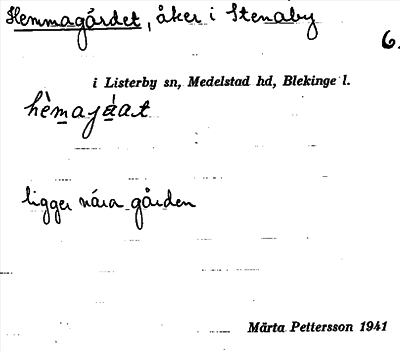 Hemmagärdet, åker i Stenaby
6.
i Listerby sn, Medelstad hd, Blekinge l.
hèmajáat
ligger nära gården
Märta Pettersson 1941